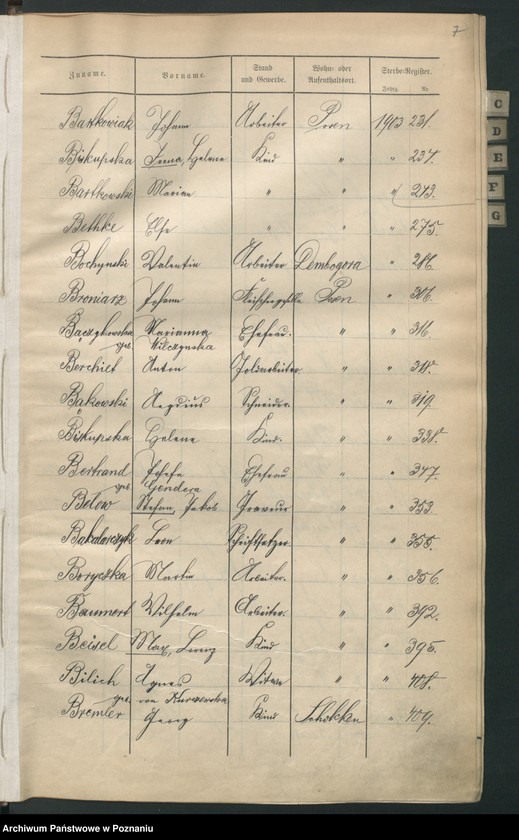 7
Zuname. Vorname. Stand und Gewerbe. Wohn- oder Aufenthaltsort. Sterbe-Register.
Jahrg. Nr.
Bartkowiak Johann Arbeiter Posen 1903 231.
Biskupska Irena, Helene Kind " " 237.
Bartkowski Marian " " " 243.
Bethke Else " " " 275.
Bochynski Valentin Arbeiter Dembogora " 286.
Broniarz Johann Posen " 306.
Bączykowska Marianna Ehefrau. " " 316.
geb. Wilczynska
Berchiet Anton " " 318.
Bąkowski Schneider. " " 319.
Biskupska Helene Kind. " " 338.
Bertrand Josefa Ehefrau " " 347.
geb. Gendera
Below Stefan, Jakob Graveur " " 353.
Leon Schriftsetzer. " " 355.
Boryczka Martin Arbeiter. " " 356.
Baumert Wilhelm Arbeiter. " " 392.
Beisel Max, Lorenz Kind " " 395.
Bilich Agnes Witwe " " 408.
geb. von
Bremler Georg Kind Schokken " 409.
C
D
E
F
G
Archiwum Państwowe w Poznaniu